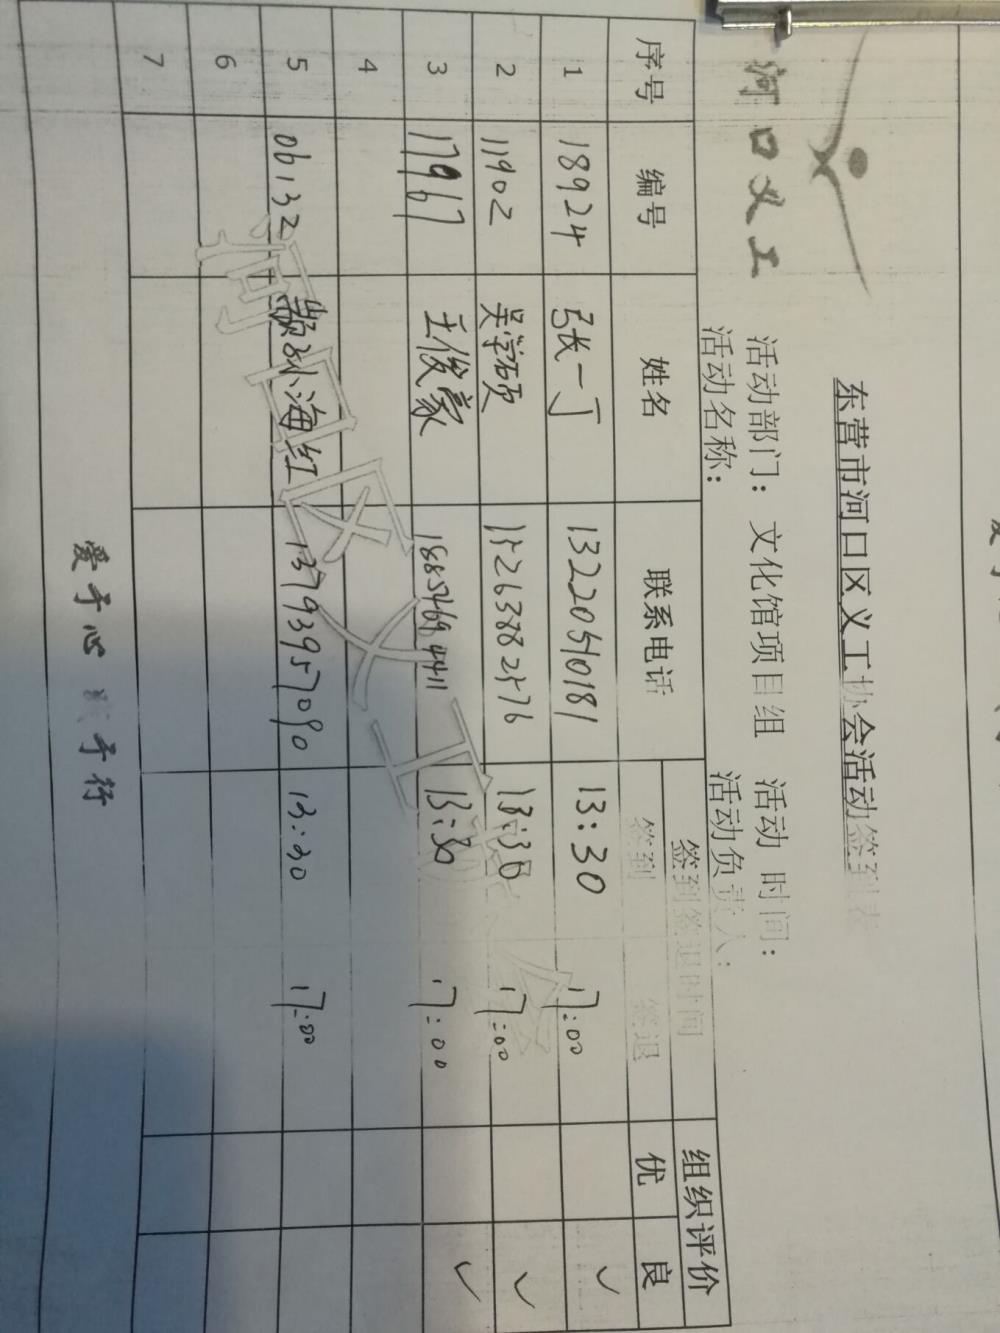 河口义工
东营市河口区义工协会活动签到表
活动部门：文化馆项目组 活动 时间：
活动名称： 活动负责人：
序号 编号 姓名 联系电话 签到签退时间 组织评价
签到 签退 优 良
1 18924 张一丁 13220540181 13:30 17:00 ✓
2 11902 吴学硕 15263882576 13:30 17:00 ✓
3 17967 王俊豪 18854694411 13:30 17:00 ✓
4
5 06132 孙海红 13793957090 13:30 17:00
6
7
河口区义工协会
爱于心 践于行